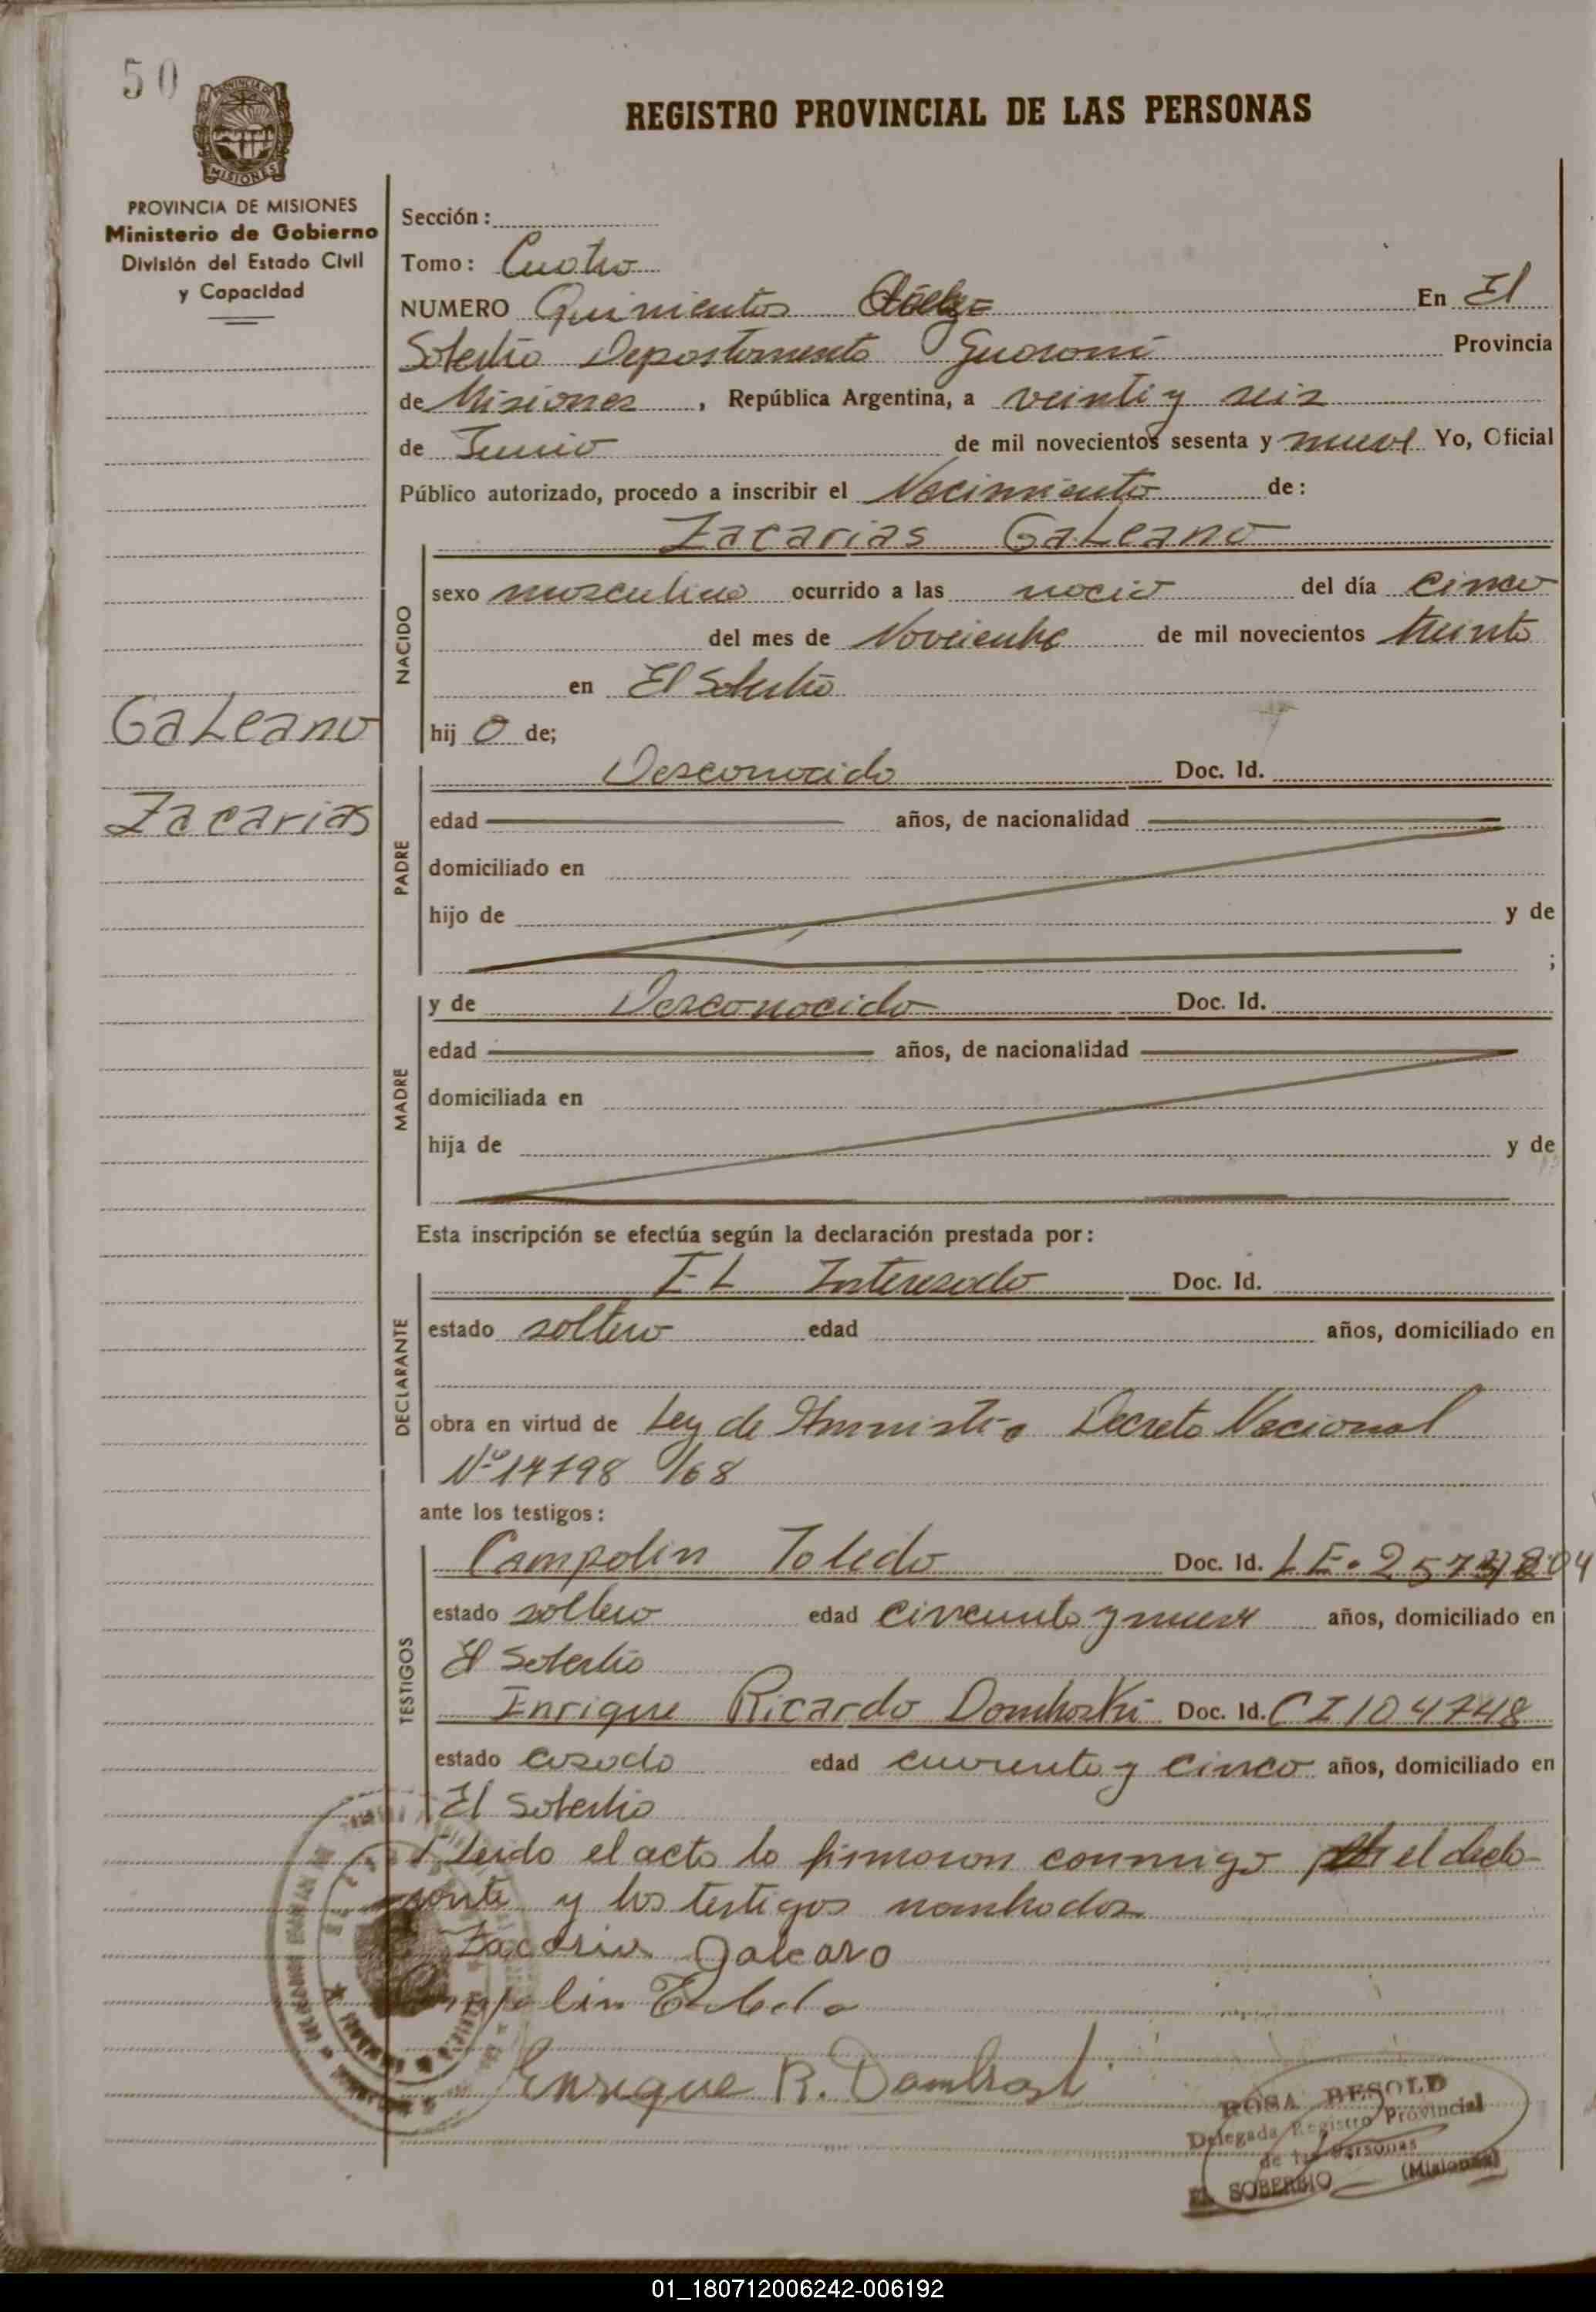 50
REGISTRO PROVINCIAL DE LAS PERSONAS
PROVINCIA DE MISIONES
Ministerio de Gobierno
División del Estado Civil
y Capacidad
Sección:
Tomo: Cuatro
NUMERO Quinientos En El
Soberbio Departamento Guaraní Provincia
de Misiones, República Argentina, a veinti y seis
de Junio de mil novecientos sesenta y nueve Yo, Oficial
Público autorizado, procedo a inscribir el Nacimiento de:
Zacarias Galeano
NACIDO
sexo masculino ocurrido a las del día cinco
del mes de Noviembre de mil novecientos treinta
en El Soberbio
hijo de;
Galeano
Zacarias
PADRE
Desconocido Doc. Id.
edad años, de nacionalidad
domiciliado en
hijo de y de
;
MADRE
y de Desconocido Doc. Id.
edad años, de nacionalidad
domiciliada en
hija de y de
Esta inscripción se efectúa según la declaración prestada por:
DECLARANTE
EL Interesado Doc. Id.
estado soltero edad años, domiciliado en
obra en virtud de Ley de Amnistia Decreto Nacional
Nº 17798/68
ante los testigos:
TESTIGOS
Campolin Toledo Doc. Id. L E.
estado soltero edad cincuenta y nueve años, domiciliado en
El Soberbio
Enrique Ricardo Domboski Doc. Id. C I 104748
estado casado edad cuarenta y cinco años, domiciliado en
El Soberbio
Leido el acta la firmaron conmigo el decla-
rante y los testigos nombrados
Zacarias Galeano
Campolin Toledo
Enrique R. Dombroski
ROSA BESOLD
Delegada Registro Provincial
de las Personas
EL SOBERBIO (Misiones)
01_180712006242-006192